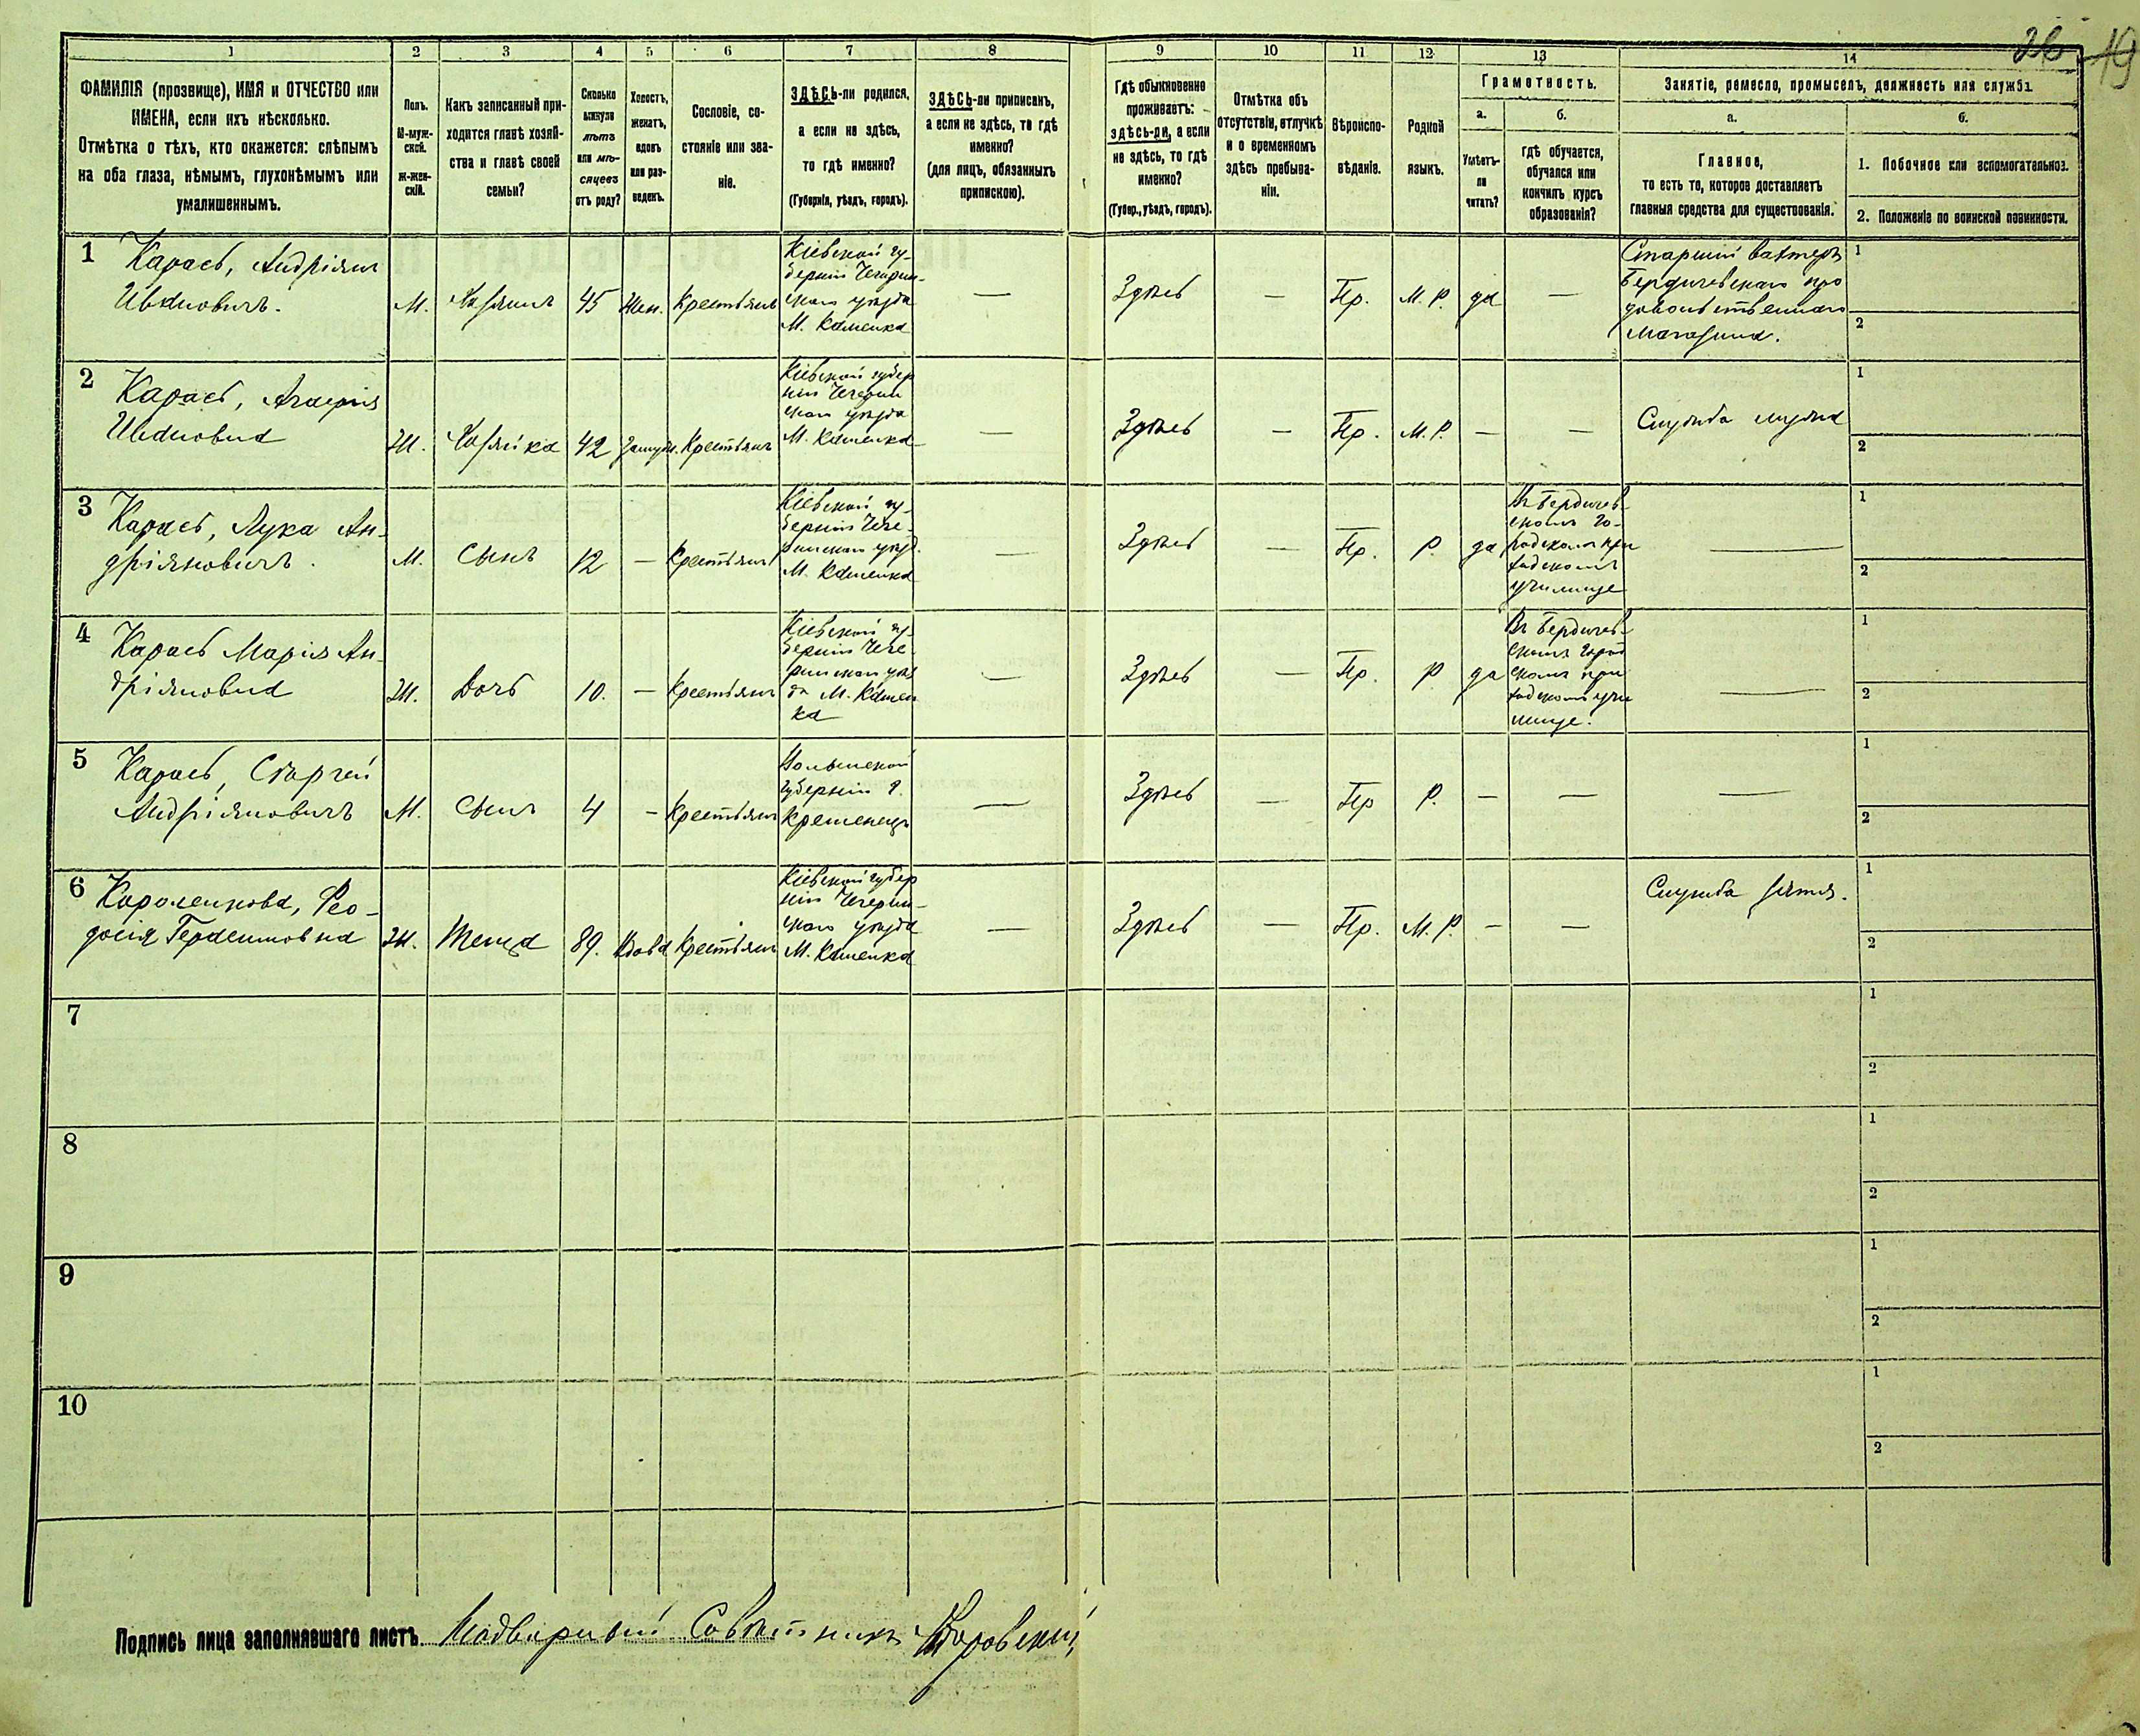 26 19
1 2 3 4 5 6 7 8 9 10 11 12 13 14
ФАМИЛІЯ (прозвище), ИМЯ и ОТЧЕСТВО или
ИМЕНА, если ихъ нѣсколько.
Отмѣтка о тѣхъ, кто окажется: слѣпымъ
на оба глаза, нѣмымъ, глухонѣмымъ или
умалишеннымъ.
Полъ.
М-муж-
ской.
Ж-жен-
скій.
Какъ записанный при-
ходится главѣ хозяй-
ства и главѣ своей
семьи?
Сколько
минуло
лѣтъ
или мѣ-
сяцевъ
отъ роду?
Холостъ,
женатъ,
вдовъ
или раз-
веденъ.
Сословіе, со-
стояніе или зва-
ніе.
ЗДѢСЬ-ли родился,
а если не здѣсь,
то гдѣ именно?
(Губернія, уѣздъ, городъ).
ЗДѢСЬ-ли приписанъ,
а если не здѣсь, то гдѣ
именно?
(для лицъ, обязанныхъ
припискою).
Гдѣ обыкновенно
проживаетъ:
здѣсь-ли, а если
не здѣсь, то гдѣ
именно?
(Губер., уѣздъ, городъ).
Отмѣтка объ
отсутствіи, отлучкѣ
и о временномъ
здѣсь пребыва-
ніи.
Вѣроиспо-
вѣданіе.
Родной
языкъ.
Грамотность.
а.
Умѣетъ-
ли
читать?
б.
Гдѣ обучается,
обучался или
кончилъ курсъ
образованія?
Занятіе, ремесло, промыселъ, должность или служба
а.
Главное,
то есть то, которое доставляетъ
главныя средства для существованія.
б.
1. Побочное или вспомогательное.
2. Положеніе по воинской повинности.
1
Карась, Андріянъ
Ивановичъ.
М.
Хозяинъ
45
Жен.
Крестьянъ
Кіевской гу-
берніи Чегирин-
скаго уѣзда
М. Каменка
—
Здѣсь
—
Пр.
М. Р.
да
—
Старшій вахтеръ
Бердичевскаго про
довольственнаго
магазина.
1
2
2
Карась, Агафія
Ивановна
Ж.
Хозяйка
42
Замуж.
Крестьянъ
Кіевской губер
ніи Чегирин
скаго уѣзда
М. Каменка
—
Здѣсь
—
Пр.
М. Р.
—
—
Служба мужа
1
2
3
Карась, Лука Ан-
дріяновичъ.
М.
Сынъ
12
—
Крестьянъ
Кіевской гу-
берніи Чеге-
ринскаго уѣзд.
М. Каменка
—
Здѣсь
—
Пр.
Р.
да
Въ Бердичев-
скомъ го-
родскомъ при
ходскомъ
училище
—
1
2
4
Карась Марія Ан-
дріяновна
Ж.
Дочь
10.
—
Крестьянъ
Кіевской гу-
берніи Чеге-
ринскаго уѣз
да М. Камен
ка
—
Здѣсь
—
Пр.
Р
да
Въ Бердичев-
скомъ город
скомъ при
ходскомъ учи
лище.
—
1
2
5
Карась, Сергей
Андріяновичъ
М.
Сынъ
4
—
Крестьянъ
Волынской
губерніи г.
Кременецъ
—
Здѣсь
—
Пр
Р.
—
—
—
1
2
6
Короленкова, Фео-
досія Герасимовна
Ж.
Теща
89.
Вдова
Крестьянъ
Кіевской губер
ніи Чегерин-
скаго уѣзда
М. Каменка
—
Здѣсь
—
Пр.
М. Р.
—
—
Служба зятя.
1
2
7
1
2
8
1
2
9
1
2
10
1
2
Подпись лица заполнявшаго листъ. Надворный Совѣтникъ